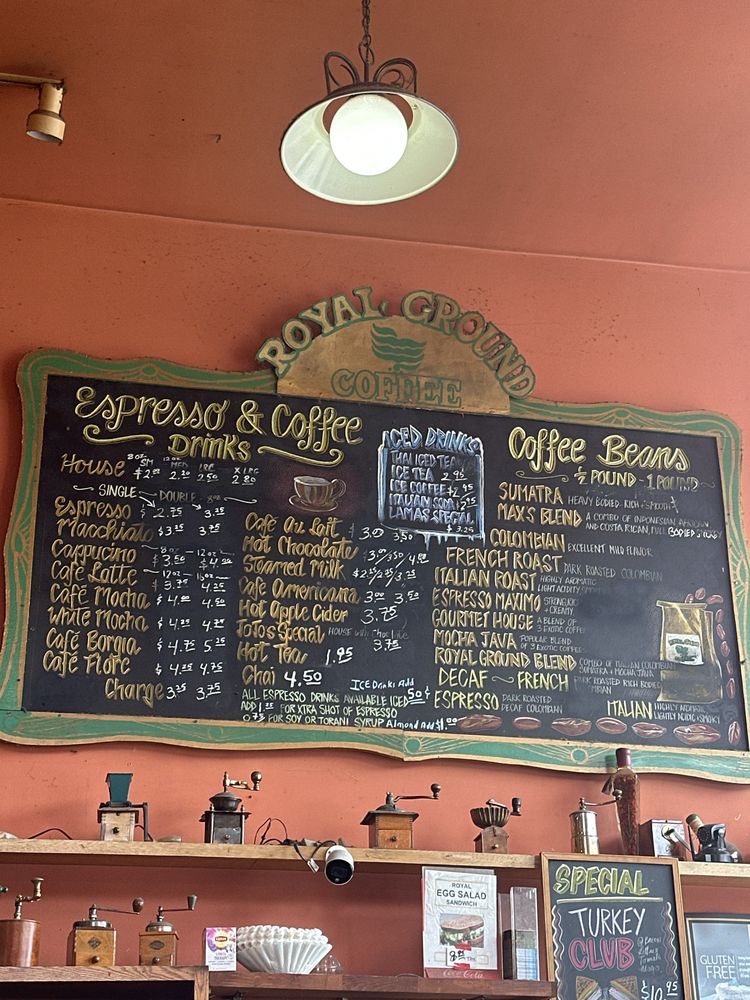 ROYAL GROUND
COFFEE
Espresso & Coffee
Drinks
House 8oz SM $2.00 12oz MED 2.20 LRG 2.50 X LRG 2.80
SINGLE DOUBLE 8oz
Espresso $2.75 3.25
Macchiato $3.25 3.75
8oz 12oz
Cappucino $3.50 $4.00
12oz 16oz
Café Latte $3.75 4.25
Café Mocha $4.00 4.50
White Mocha $4.25 4.75
Café Borgia $4.75 5.25
Café Fiore $4.25 4.75
Charge 3.25 3.75
Café Au Lait $3.00 3.50
Hot Chocolate $3.00/3.50/4.00
Steamed Milk $2.25/2.75/3.25
Café Americana $3.00 3.50
Hot Apple Cider 3.75
JoJo's Special HOUSE with Chocolate 3.75
Hot Tea 1.95
Chai 4.50
ICE Drinks Add 50¢
ALL ESPRESSO DRINKS AVAILABLE ICED
ADD 1.00 FOR XTRA SHOT OF ESPRESSO
0.75 FOR SOY OR TORANI SYRUP Almond Add $1.00
ICED DRINKS
THAI ICED TEA
ICE TEA 2.95
ICE COFFEE $2.95
ITALIAN SODA $2.95
LAMAS SPECIAL
$3.25
Coffee Beans
½ POUND - 1 POUND
SUMATRA HEAVY BODIED - RICH & SMOOTH
MAX'S BLEND A COMBO OF INDONESIAN, AFRICAN
AND COSTA RICAN, FULL BODIED & TANGY
COLOMBIAN EXCELLENT MILD FLAVOR
FRENCH ROAST DARK ROASTED COLOMBIAN
ITALIAN ROAST HIGHLY AROMATIC
LIGHT ACIDITY
ESPRESSO MAXIMO STRONG, RICH
+ CREAMY
GOURMET HOUSE A BLEND OF
3 EXOTIC COFFEES
MOCHA JAVA POPULAR BLEND
OF 2 EXOTIC COFFEES
ROYAL GROUND BLEND COMBO OF ITALIAN COLOMBIAN
SUMATRA & MOCHA JAVA
DECAF ~ FRENCH DARK ROASTED RICH BODIED
ESPRESSO DARK ROASTED
DECAF COLOMBIAN
ITALIAN HIGHLY AROMATIC
LIGHTLY ACIDIC & SMOKY
ROYAL
EGG SALAD
SANDWICH
Coca-Cola
SPECIAL
TURKEY
CLUB
@ Bacon
Lettuce
Tomato
Mayo
$10.95
GLUTEN
FREE